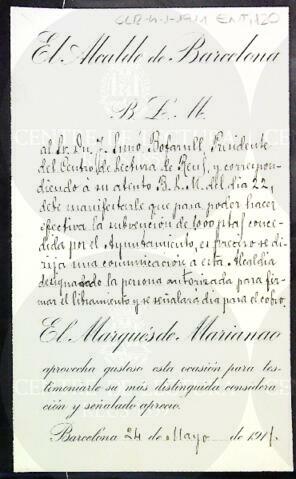 El Alcalde de Barcelona
B. L. M.
al Sr. Dn. J. Simó Bofarull, Presidente
del Centro de Lectura de Reus, y correspon-
diendo á su atento B.L.M. del dia 22,
debe manifestarle que para poder hacer
efectiva la subvención de 1000 ptas conce-
dida por el Ayuntamiento, es preciso se di-
rija una comunicación a esta Alcaldía
designando la persona autorizada para fir-
mar el libramiento y se señalará dia para el cobro.
El Marqués de Marianao
aprovecha gustoso esta ocasión para tes-
timoniarle su más distinguida considera-
ción y señalado aprecio.
Barcelona 24 de Mayo de 1911.